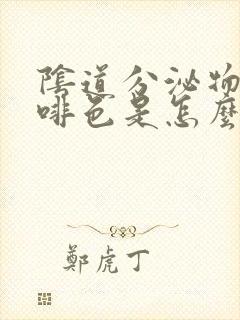 陰道分泌物
啡色是怎麼
鄭虎丁